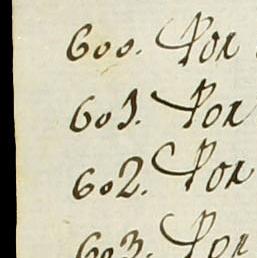 600. Por
601. Por
602. Por
603. Por